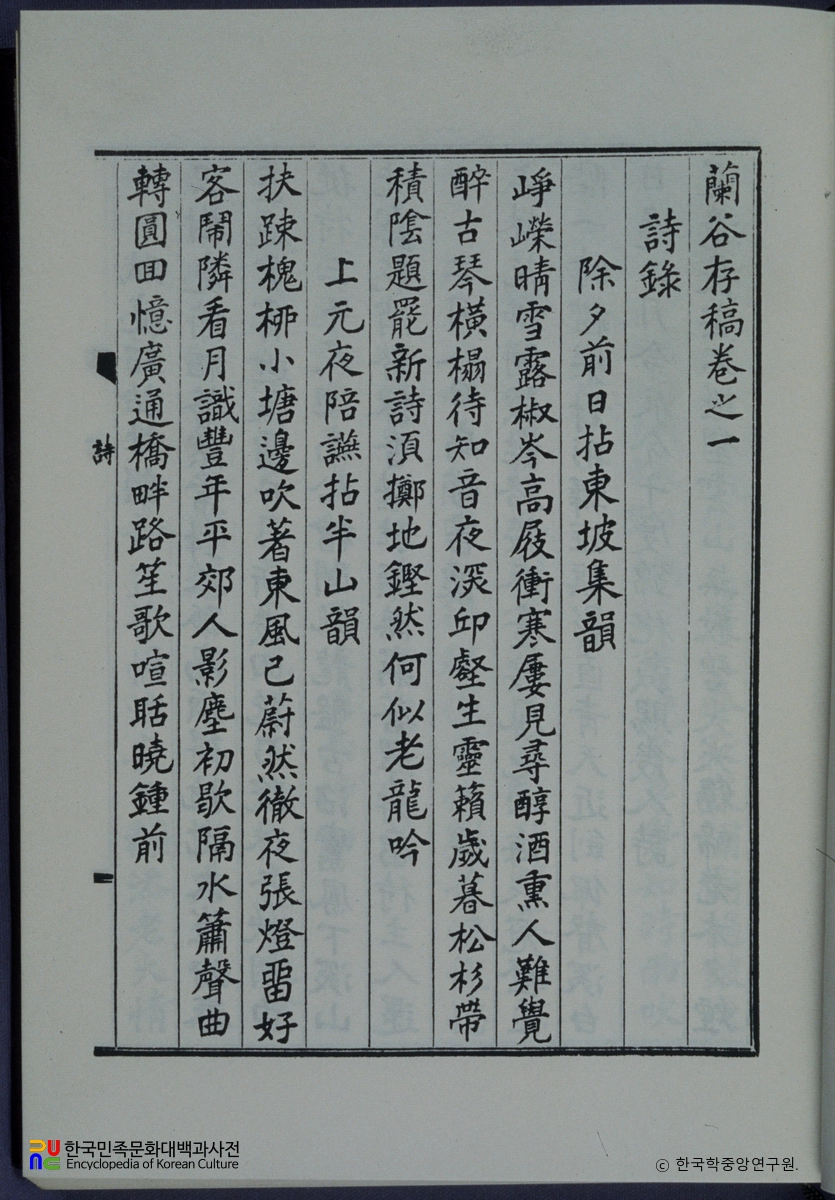 蘭谷存稿卷之一
詩錄
除夕前日拈東坡集韻
崢嶸晴雪露椒岑高屐衝寒屢見尋醇酒熏人難覺
醉古琴橫榻待知音夜深邱壑生靈籟歲暮松杉帶
積陰題罷新詩須擲地鏗然何似老龍吟
上元夜陪讌拈半山韻
扶踈槐栁小塘邊吹著東風已蔚然徹夜張燈畱好
客鬧隣看月識豐年平郊人影塵初歇隔水簫聲曲
轉圓回憶廣通橋畔路笙歌喧聒曉鍾前
詩
한국민족문화대백과사전
Encyclopedia of Korean Culture
© 한국학중앙연구원.